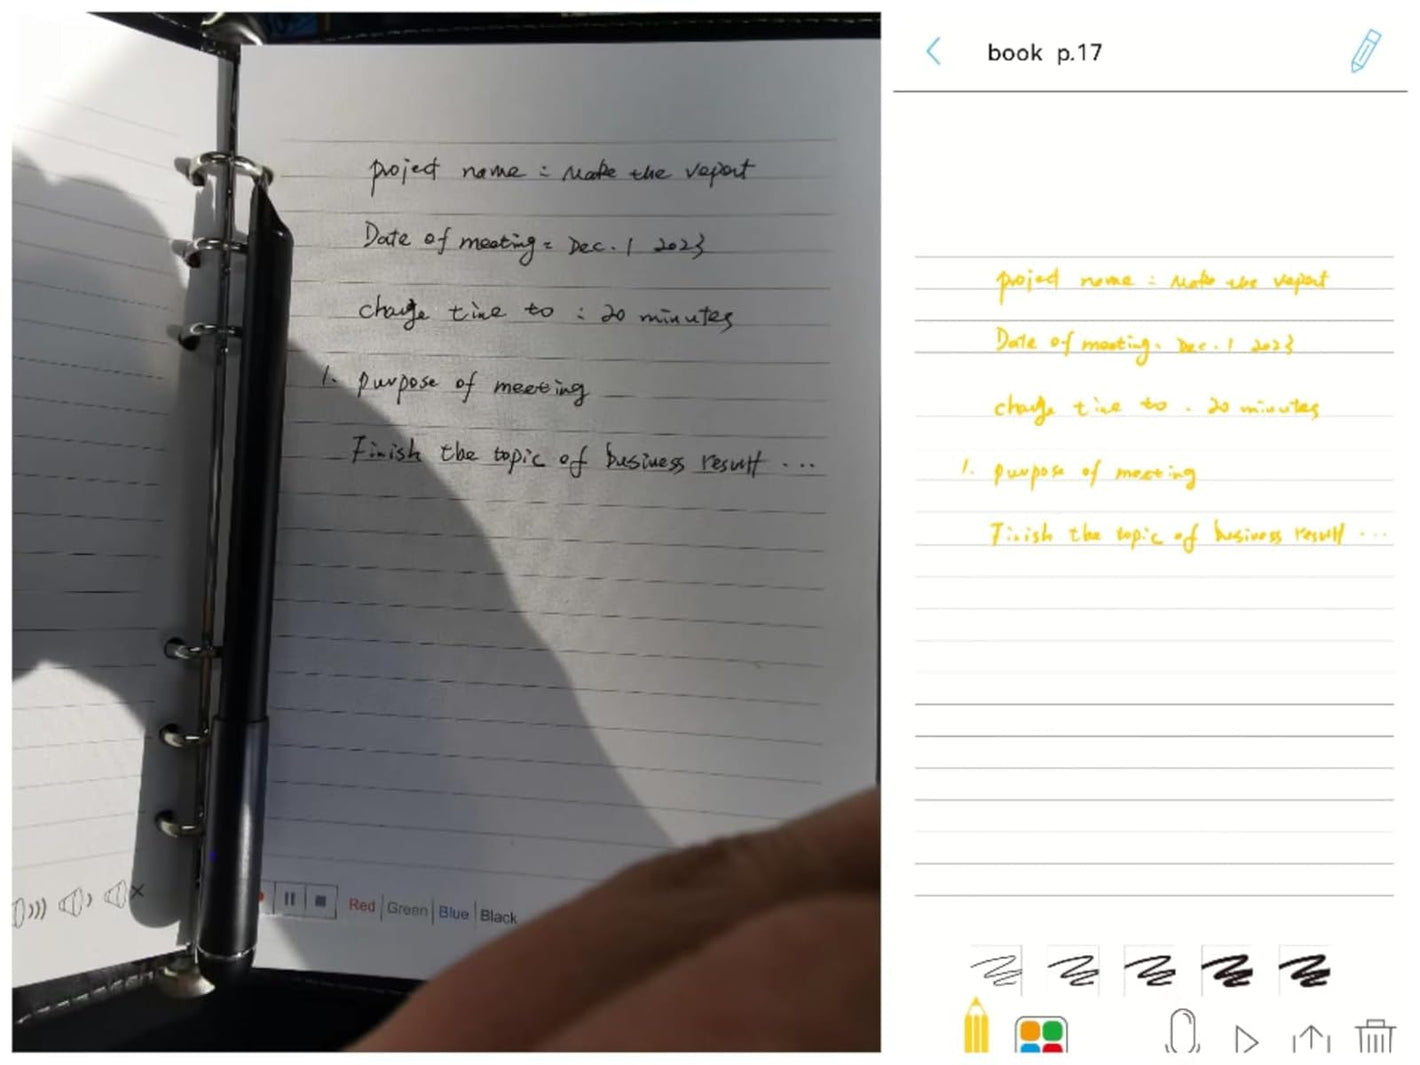 project name : Make the report
Date of meeting : Dec. 1 2023
change time to : 20 minutes
1. purpose of meeting
Finish the topic of business result ...
Red Green Blue Black
book p.17
project name : Make the report
Date of meeting : Dec. 1 2023
change time to : 20 minutes
1. purpose of meeting
Finish the topic of business result ...